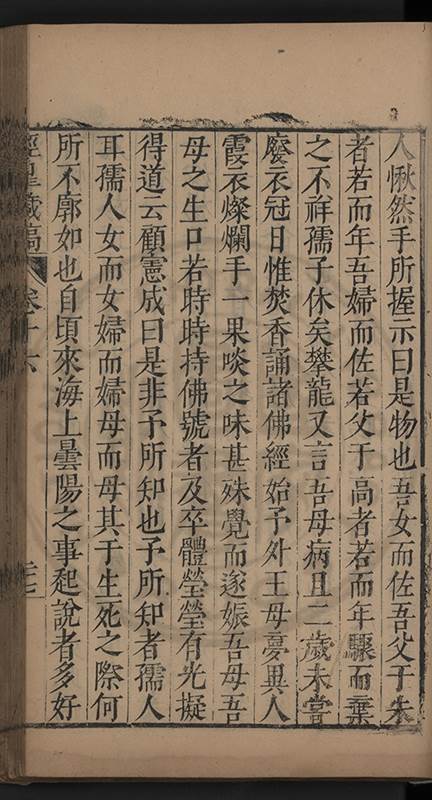 人愀然手所握示曰是物也吾女而佐吾父于朱
者若而年吾婦而佐若父于高者若而年驟而棄
之不祥孺子休矣攀龍又言吾母病且二歲未嘗
廢衣冠日惟焚香誦諸佛經始予外王母夢異人
霞衣燦爛手一果啖之味甚殊覺而遂娠吾母吾
母之生口若時時持佛號者及卒體瑩瑩有光擬
得道云顧憲成曰是非予所知也予所知者孺人
耳孺人女而女婦而婦母而母其于生死之際何
所不廓如也自頃來海上曇陽之事起說者多好
涇臯藏稿 卷十六 二